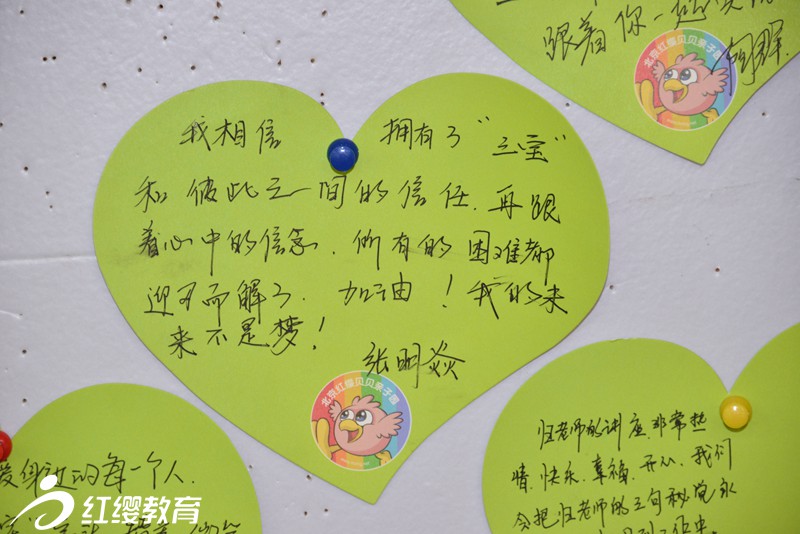 跟着你一起
北京红缨贝贝亲子园
我相信 拥有了“三宝”
和彼此之间的信任,再跟
着心中的信念,所有的困难都
迎刃而解了.加油!我的未
来不是梦!
张明焱
北京红缨贝贝亲子园
爱身边的每一个人.
红缨教育
归老师的讲座,非常热
情、快乐、幸福、开心,我们
会把归老师的三句秘诀永